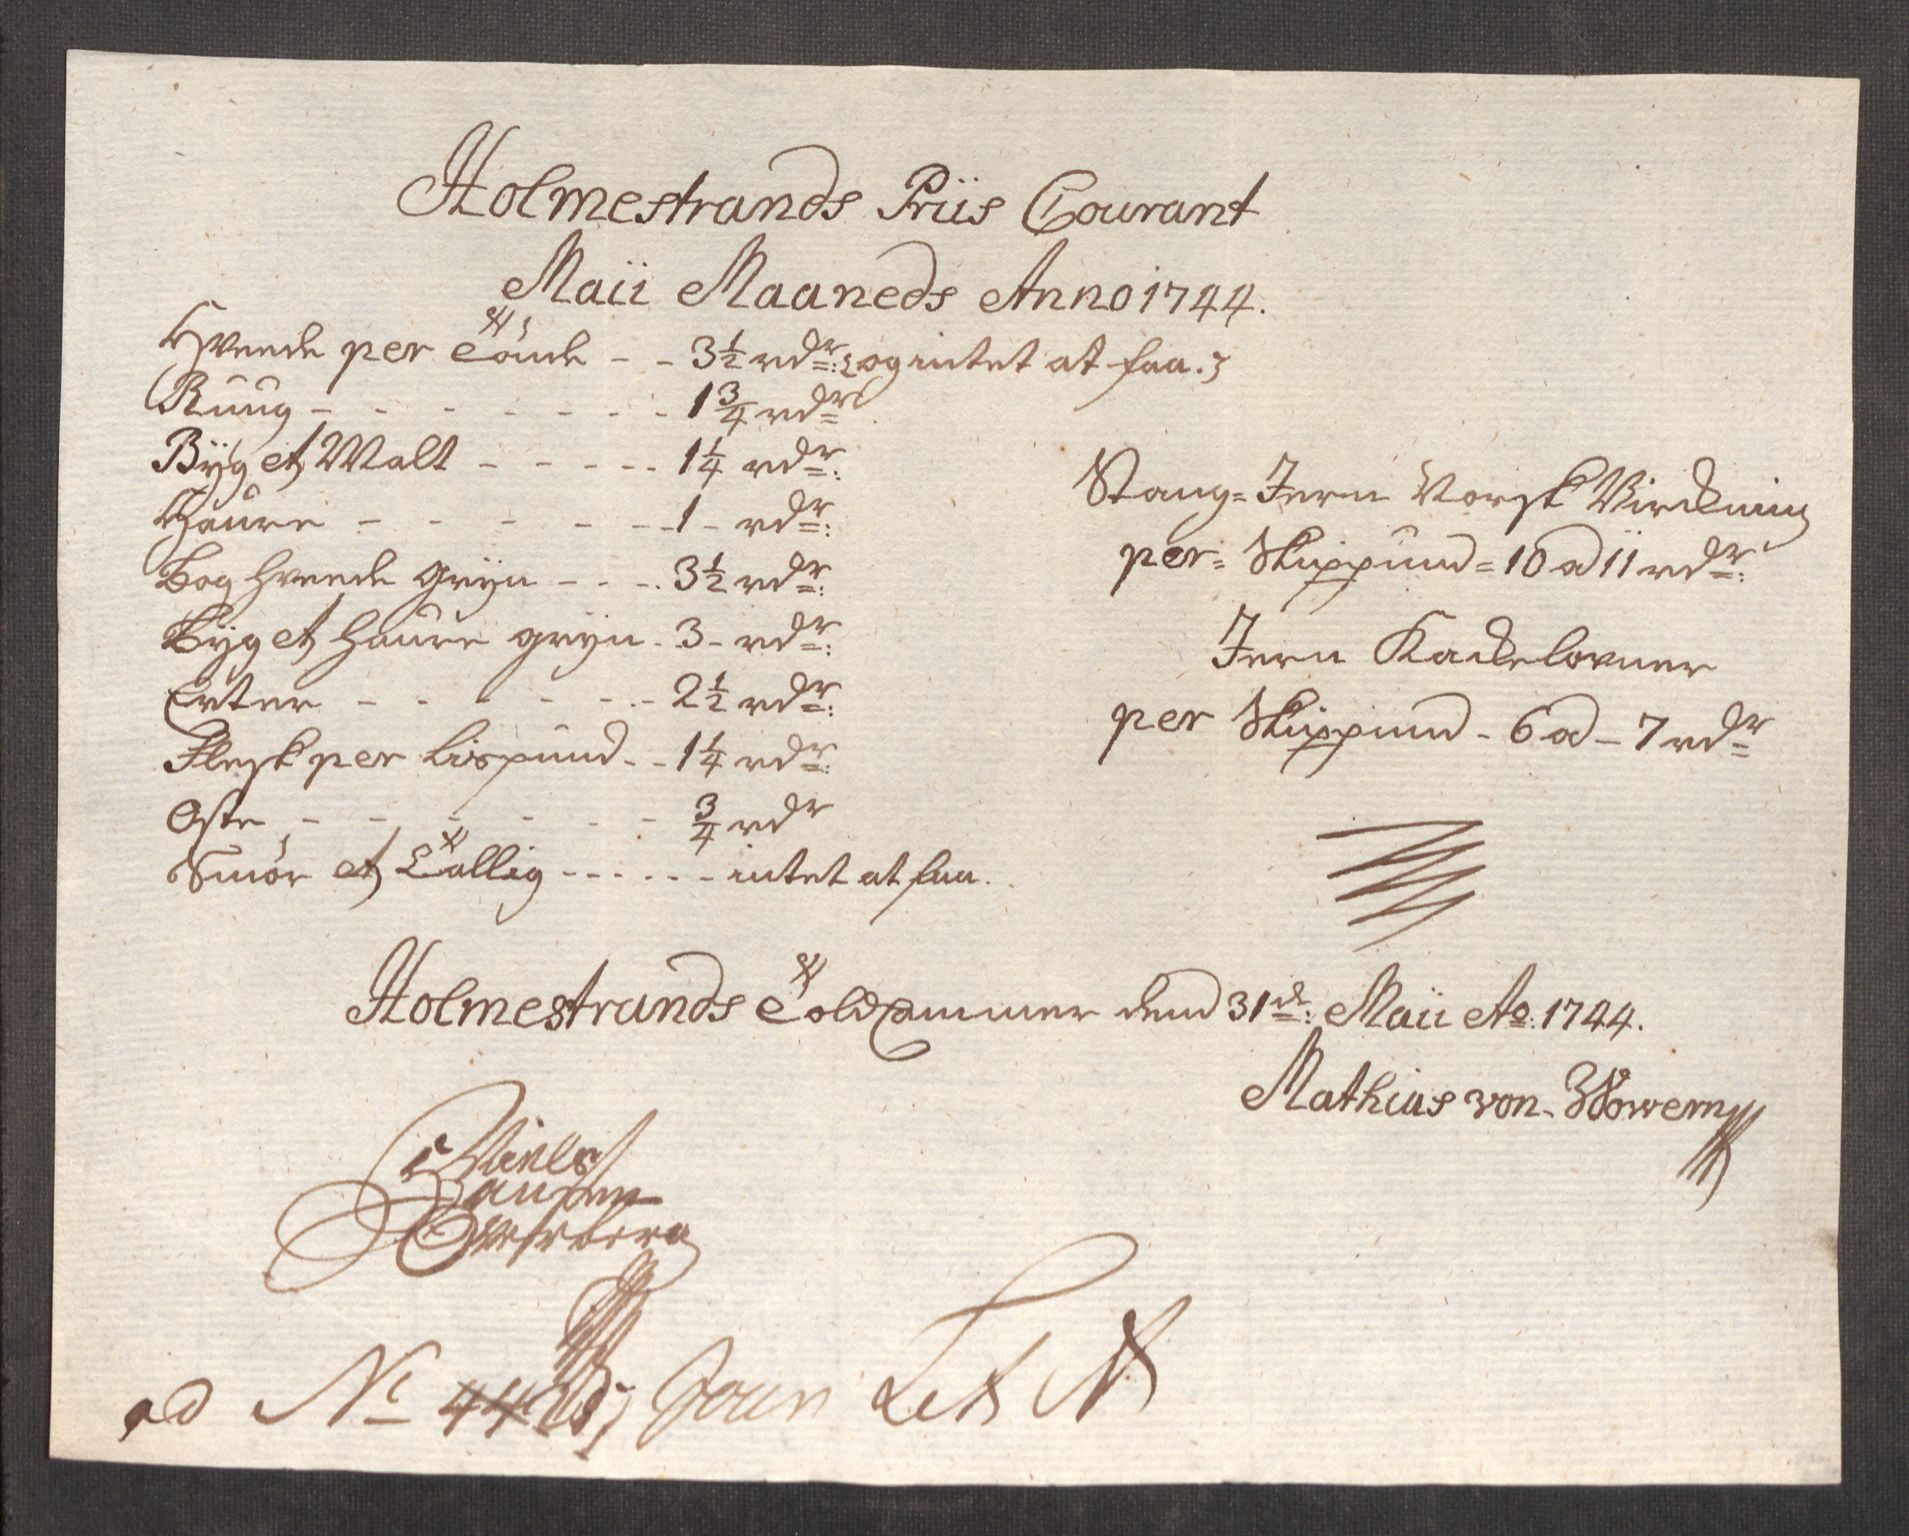 Holmestrands Priis Courant
Maii Maaneds Anno 1744.
Hveede per Tönde - - 3½ rdr: og intet at faa.
Ruug - - - - - - - 1¾ rdr
Byg et Malt - - - - - 1¼ rdr:
Haure - - - - - - 1 - rdr:
Boghveede gryn - - - 3½ rdr:
Byg et Haure gryn - 3 - rdr:
Erter - - - - - - 2½ rdr:
Flesk per Lispund - - 1¼ rdr:
Oste - - - - - - ¾ rdr
Smör et Tallig - - - - - - intet at faa.
Stang-Jern Norsk Virckning
per Skippund = 10 a 11 rdr:
Jern Kackelovner
per Skippund - 6 a - 7 rdr
Holmestrands Toldcammer dend 31de: Maii Ao: 1744.
Mathias von Wowern
Niels
Hansen
Oversberg
ad No Journ Lit N